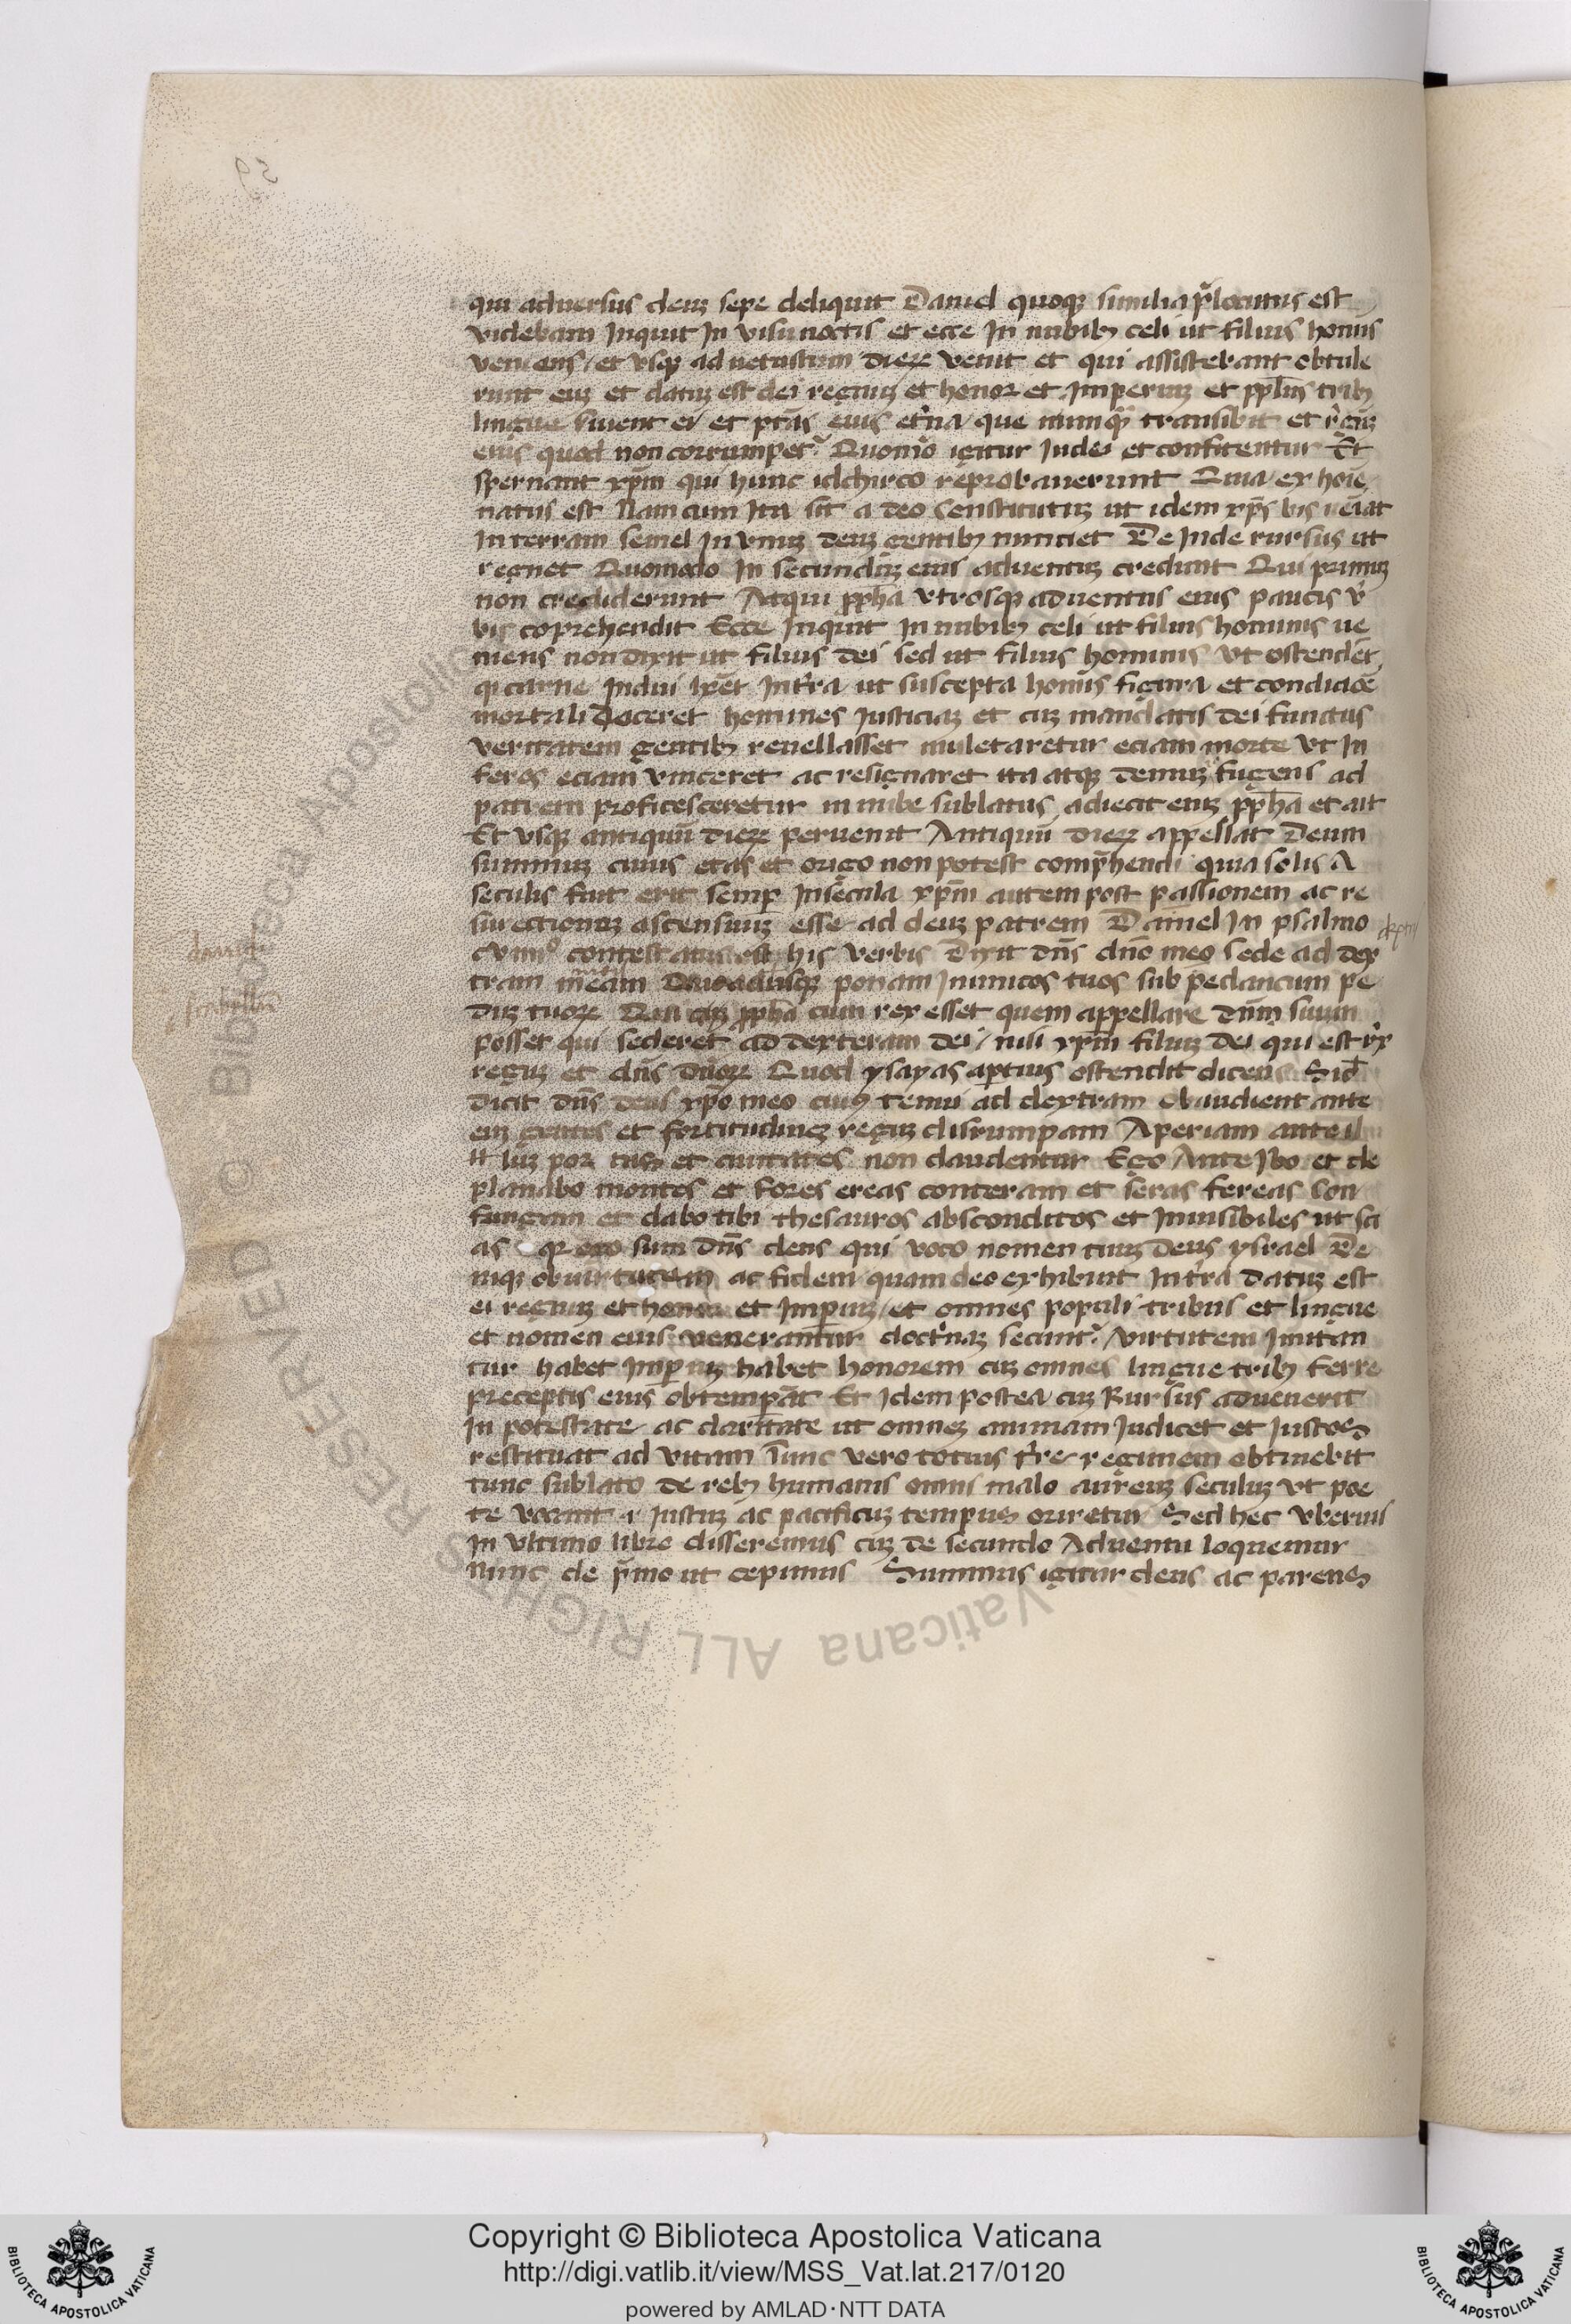 59
qui aduersus deuʒ sepe deliquit Daniel quoqʒ similia p̃locutus est
videbam Inquit In visu noctis et ecce In nubibʒ celi ut filius homīs
veniens / et vsqʒ ad uetustum dieꝝ venit et qui assistebant obtule
runt euʒ et datuʒ est dei regnuʒ et honor et Imperiuʒ et pp̄lus tribʒ
lingue siuent ei et ptās eius et̾na / que nunqᷓ transibit et r̾gnuʒ
eius quod non corrumpet᷑ Quomͦo igitur Iudei et confitentur Et
spernant xp̄m qui hunc idchirco reprobauerunt Quia / ex hoīe
natus est Nam cum Ita sit a deo Constitutuʒ ut idem xp̄s bis ueīat
In terram semel In vnuʒ deuʒ gentibʒ nunciet De Inde rursus ut
regnet Quomodo In secunduʒ eius aduentuʒ credunt Qui primuʒ
non crediderunt Atqui pp̄ha vtrosqʒ aduentus eius paucis v̾
bis coprehendit Ecce Inquit In nubibʒ celi ut filius hominis ue
niens non dixit ut filius dei sed ut filius hominis vt ostender̾
qͥ carne Indui hr̄et In t̾ra ut suscepta homīs figura et condicōe
mortali doceret homines Iusticiaʒ et cuʒ mandatis dei functus
veritatem gentibʒ reuellasset muletaretur eciam morte vt In
feros eciam vinceret ac resignaret ita atqʒ demuʒ fugens ad
patrem proficesceretur in nube sublatus adiecit eniʒ pp̄ha et ait
Et vsqʒ antiquū dieꝝ peruenit Antiquū dieꝝ appellat Deum
summuʒ cuius etas et origo non potest comp̄hendi quia solis A
seculis fuit erit semꝑ In secula xp̄m autem post passionem ac re
surectioneʒ ascensuuʒ esse ad deuʒ patrem Daniel In psalmo
contestatus est his verbis Dixit dn̄s dn̄o meo sede ad dex
tram meam Quoadusqʒ ponam Inimicos tuos sub pedaneum pe
duʒ tuoꝝ pp̄ha cum rex esset quem appellare dn̄m suum
posset qui sederet ad dexteram dei / nisi xp̄m filiuʒ dei qui est rx̾
reguʒ et dn̄s dn̄oꝝ Quod ysayas aptius ostendit dicens Sic
dicit dn̄s deus xp̄o meo cuiꝰ tenui ad dextram obaudient ante
eū gentes et fortitudineʒ reguʒ disrumpam Aperiam ante il
luʒ portas et ciuitates non claudentur Ego Ante Ibo et de
planabo montes et fores ereas conteram et seras fereas Con
fungam et dabo tibi thesauros absconditos et Inuisibiles ut sci
as qꝛ ego sum dn̄s deus qui voco nomen tuuʒ deus ysrael De
niqʒ ob uirtutem ac fidem quam deo exhibuit In t̾ra datuʒ est
ei regnuʒ et honor et Imꝑiuʒ / et omnes populi tribus et lingue
et nomen eius venerantur doct̾naʒ secunt᷑ / virtutem Imitan
tur habet Imꝑiuʒ habet honorem cuʒ omnes lingue tribʒ terre
preceptis eius obtempāt Et Idem postea cuʒ Rursus aduenerit
In potestate ac claritate ut omneʒ animam Iudicet et Iustos
restituat ad vitam Tunc vero totius t̾re regimem obtinebit
tunc sublato de rebʒ humanis omni malo aureuʒ seculuʒ vt poe
te vocant .i. Iustuʒ ac pacificuʒ tempus oriretur Sed hec vberius
In vltimo libro disseremus cuʒ de secundo Aduentu loquemur
Nunc de p̾mo ut cepimus Summus igitur deus ac parens
Copyright © Biblioteca Apostolica Vaticana
http://digi.vatlib.it/view/MSS_Vat.lat.217/0120
powered by AMLAD·NTT DATA
BIBLIOTECA APOSTOLICA VATICANA
BIBLIOTECA APOSTOLICA VATICANA
Biblioteca Apostolica Vaticana ALL RIGHTS RESERVED ©